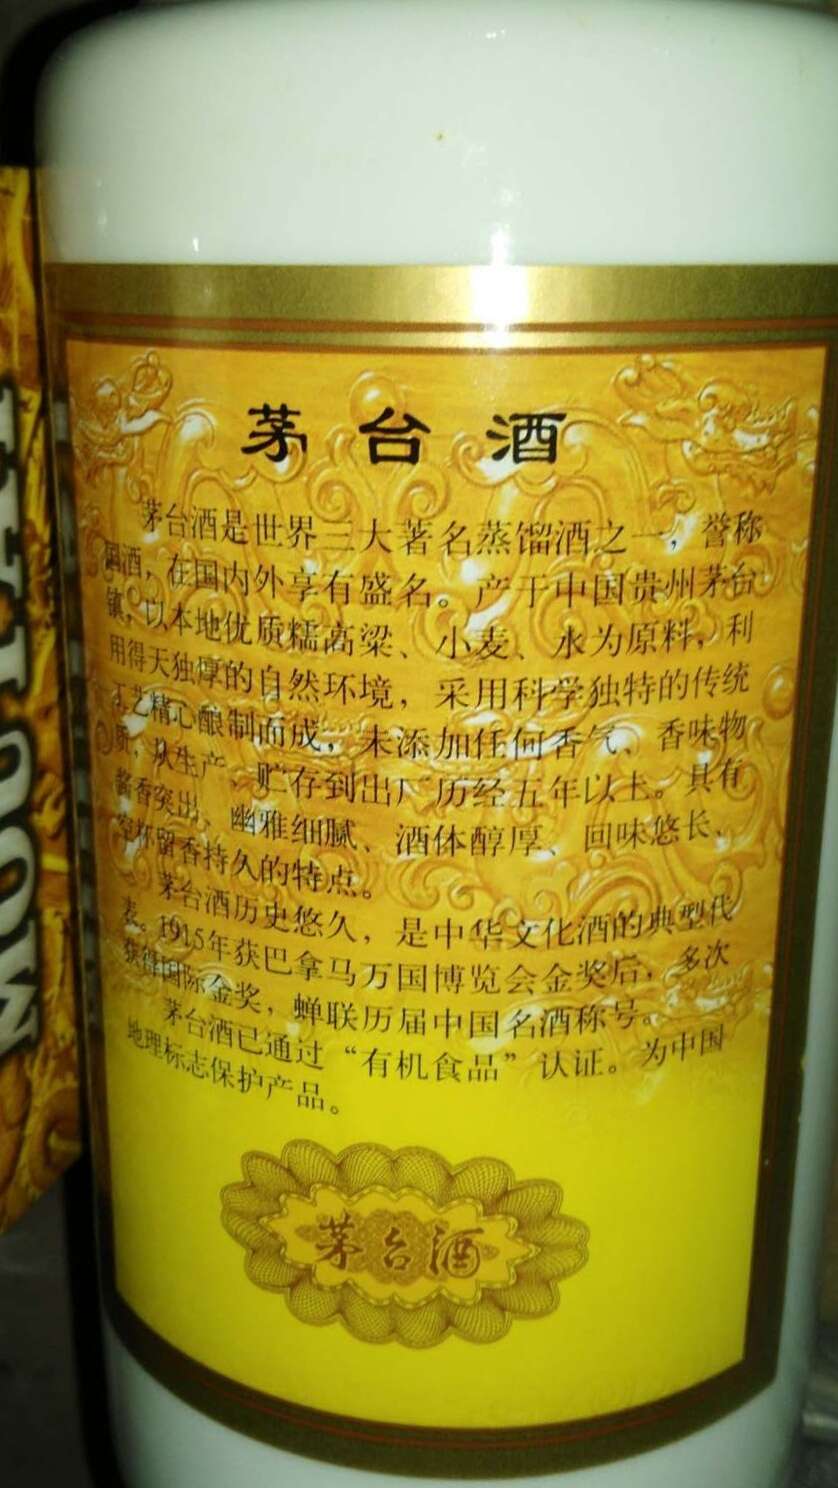 茅台酒
茅台酒是世界三大著名蒸馏酒之一，誉称
国酒，在国内外享有盛名。产于中国贵州茅台
镇，以本地优质糯高粱、小麦、水为原料，利
用得天独厚的自然环境，采用科学独特的传统
工艺精心酿制而成，未添加任何香气、香味物
质，从生产、贮存到出厂历经五年以上。具有
酱香突出、幽雅细腻、酒体醇厚、回味悠长、
空杯留香持久的特点。
茅台酒历史悠久，是中华文化酒的典型代
表。1915年获巴拿马万国博览会金奖后，多次
获得国际金奖，蝉联历届中国名酒称号。
茅台酒已通过“有机食品”认证。为中国
地理标志保护产品。
茅台酒